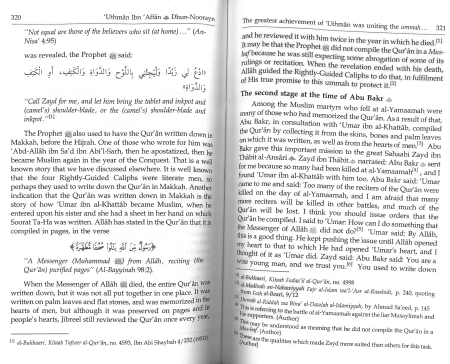 320 'Uthmân Ibn 'Affân Dhun-Noorayn
"Not equal are those of the believers who sit (at home)..." (An-
Nisa' 4:95)
was revealed, the Prophet ﷺ said:
«ادْعُ لِي زَيْدًا وَلْيَجِئْنِي بِاللَّوْحِ وَالدَّوَاةِ وَالْكَتِفِ، أَوِ الْكَتِفِ
وَالدَّوَاةِ»
"Call Zayd for me, and let him bring the tablet and inkpot and
(camel's) shoulder-blade, or the (camel's) shoulder-blade and
inkpot."[1]
The Prophet ﷺ also used to have the Qur'ân written down in
Makkah, before the Hijrah. One of those who wrote for him was
'Abd-Allâh ibn Sa'd ibn Abi'l-Sarh, then he apostatized, then he
became Muslim again in the year of the Conquest. That is a well
known story that we have discussed elsewhere. It is well known
that the four Rightly-Guided Caliphs were literate men, so
perhaps they used to write down the Qur'ân in Makkah. Another
indication that the Qur'ân was written down in Makkah is the
story of how 'Umar ibn al-Khattâb became Muslim, when he
entered upon his sister and she had a sheet in her hand on which
Soorat Ta-Ha was written. Allâh has stated in the Qur'ân that it is
compiled in pages, in the verse
﴿رَسُولٌ مِنَ اللَّهِ يَتْلُو صُحُفًا مُطَهَّرَةً﴾
"A Messenger (Muhammad ﷺ) from Allâh, reciting (the
Qur'ân) purified pages" (Al-Bayyinah 98:2).
When the Messenger of Allâh ﷺ died, the entire Qur'ân was
written down, but it was not all put together in one place. It was
written on palm leaves and flat stones, and was memorized in the
hearts of men, but although it was preserved on pages and in
people's hearts, Jibreel still reviewed the Qur'ân once every year,
[1] al-Bukhari, Kitab Tafseer al-Qur'ân, no. 4593, Ibn Abi Shaybah
The greatest achievement of 'Uthmân was uniting the ummah... 321
and he reviewed it with him twice in the year in which he died.[1]
It may be that the Prophet ﷺ did not compile the Qur'ân in a Mus-
haf because he was still expecting some abrogation of some of its
rulings or recitation. When the revelation ended with his death,
Allâh guided the Rightly-Guided Caliphs to do that, in fulfilment
of His true promise to this ummah to protect it.[2]
The second stage at the time of Abu Bakr
Among the Muslim martyrs who fell at al-Yamaamah were
many of those who had memorized the Qur'ân. As a result of that,
Abu Bakr, in consultation with 'Umar ibn al-Khattâb, compiled
the Qur'ân by collecting it from the skins, bones and palm leaves
on which it was written, as well as from the hearts of men.[3] Abu
Bakr gave this important mission to the great Sahabi Zayd ibn
Thâbit al-Ansâri. Zayd ibn Thâbit narrated: Abu Bakr sent
for me because so many had been killed at al-Yamaamah[4], and I
found 'Umar ibn al-Khattâb with him too. Abu Bakr said: 'Umar
came to me and said: Too many of the reciters of the Qur'ân were
killed on the day of al-Yamaamah, and I am afraid that many
more reciters will be killed in other battles, and much of the
Qur'ân will be lost. I think you should issue orders that the
Qur'ân be compiled. I said to 'Umar: How can I do something that
the Messenger of Allâh ﷺ did not do?[5] 'Umar said: By Allâh,
this is a good thing. He kept pushing the issue until Allâh opened
my heart to that which He had opened 'Umar's heart, and I
thought of it as 'Umar did. Zayd said: Abu Bakr said: You are a
wise young man, and we trust you.[6] You used to write down
al-Bukhari, Kitab Fadâ'il al-Qur'ân, no. 4998
p. 240, quoting
from Fath al-Baari, 9/12
by Ahmad Sa'eed, p. 145
This is referring to the battle of al-Yamaamah against the liar Musaylimah and
his supporters. (Author)
This may be understood as meaning that he did not compile the Qur'ân in a
Mus-haf. (Author)
These are the qualities which made Zayd more suited than others for this task.
(Author)